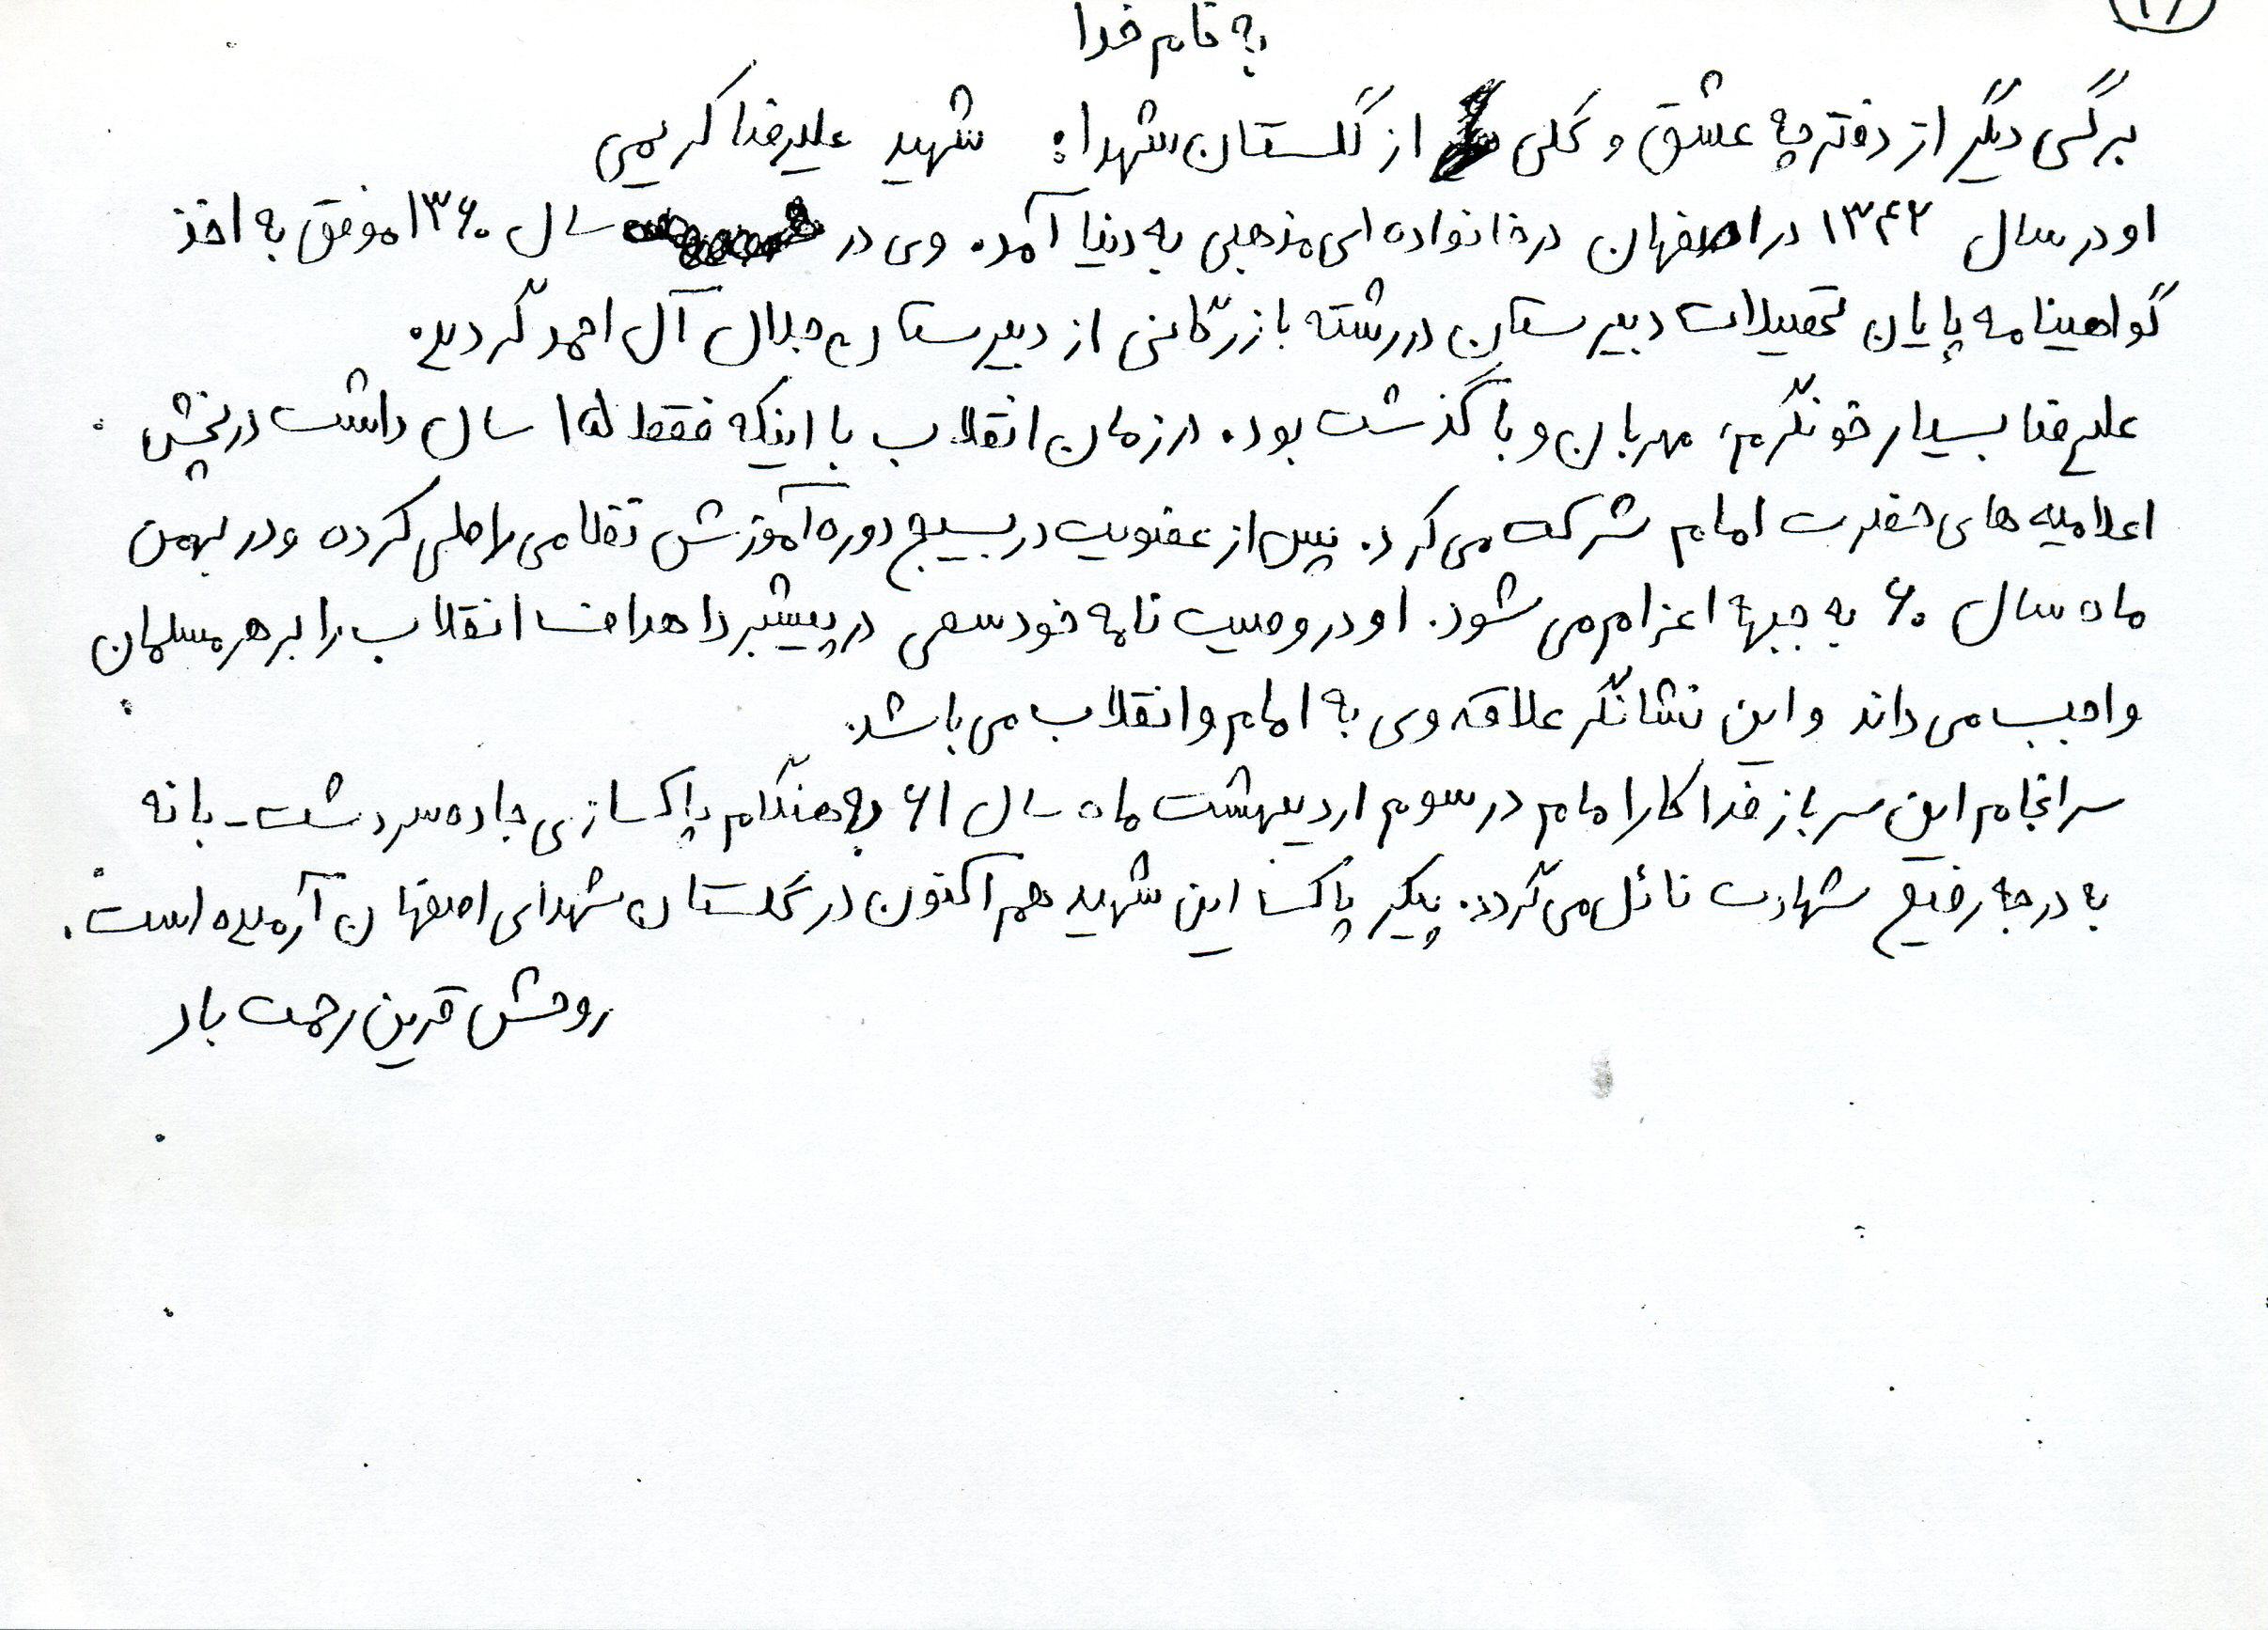 به نام خدا
برگی دیگر از دفترچه عشق و گلی از گلستان شهدا: شهید علیرضا کریمی
او در سال ۱۳۴۲ در اصفهان در خانواده ای مذهبی به دنیا آمد. وی در سال ۱۳۶۰ موفق به اخذ
گواهینامه پایان تحصیلات دبیرستان در رشته بازرگانی از دبیرستان جلال آل احمد گردید.
علیرضا بسیار خونگرم، مهربان و با گذشت بود. در زمان انقلاب با اینکه فقط ۱۵ سال داشت در پخش
اعلامیه های حضرت امام شرکت می کرد. پس از عضویت در بسیج دوره آموزش نظامی را طی کرده و در بهمن
ماه سال ۶۰ به جبهه اعزام می شود. او در وصیت نامه خود سعی در پیشبرد اهداف انقلاب را بر هر مسلمان
واجب می داند و این نشانگر علاقه وی به امام و انقلاب می باشد.
سرانجام این سرباز فداکار امام در سوم اردیبهشت ماه سال ۶۱ به هنگام پاکسازی جاده سردشت - بانه
به درجه رفیع شهادت نائل می گردد. پیکر پاک این شهید هم اکنون در گلستان شهدای اصفهان آرمیده است.
روحش قرین رحمت باد